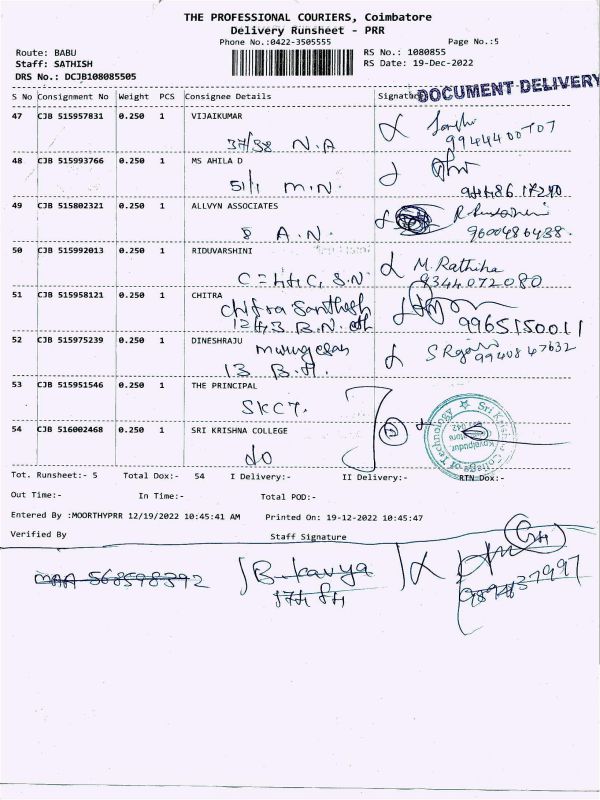 THE PROFESSIONAL COURIERS, Coimbatore
Delivery Runsheet - PRR
Phone No.:0422-3505555 Page No.:5
Route: BABU RS No.: 1080855
Staff: SATHISH RS Date: 19-Dec-2022
DRS No.: DCJB108085505
DOCUMENT DELIVERY
S No Consignment No Weight PCS Consignee Details Signature
47 CJB 515957831 0.250 1 VIJAIKUMAR
37/38 N.A
48 CJB 515993766 0.250 1 MS AHILA D
51/1 M.N.
49 CJB 515802321 0.250 1 ALLVYN ASSOCIATES
8 A.N. 9600486488.
50 CJB 515992013 0.250 1 RIDUVARSHINI M.Rathiha
C=44C, S.N 9344072080
51 CJB 515958121 0.250 1 CHITRA
Chitra Santhosh
B.N. 9965150011
52 CJB 515975239 0.250 1 DINESHRAJU
Murugesan
13 B.H.
53 CJB 515951546 0.250 1 THE PRINCIPAL
SKCT.
54 CJB 516002468 0.250 1 SRI KRISHNA COLLEGE
do
Sri Krishna College of Technology
Kovaipudur,
Coimbatore
641 042
Tot. Runsheet:- 5 Total Dox:- 54 I Delivery:- II Delivery:- RTN Dox:-
Out Time:- In Time:- Total POD:-
Entered By :MOORTHYPRR 12/19/2022 10:45:41 AM Printed On: 19-12-2022 10:45:47
Verified By Staff Signature
MAA 568598392 B.kavya